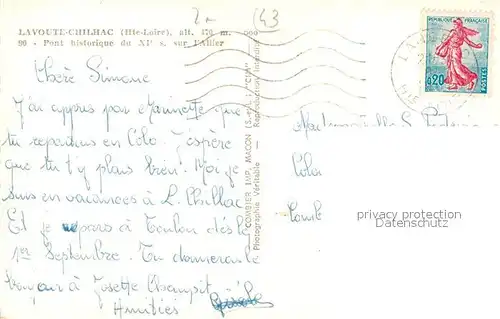 2-
43
LAVOUTE-CHILHAC (Hte-Loire), alt. m.
99 - Pont historique du XI° s. sur l'Allier
Chère Simone
J'ai appris par Jeannette que
tu repartais en Colo. J'espère
que tu t'y plais bien. Moi je
suis en vacances à L. Chillac
Et je repars à Toulon dès le
1er Septembre. Tu donneras le
bonjour à Josette
Amitiés
COMBIER IMP. MACON (S.-et-L.) "CIM"
Photographie Véritable - Reproduction interdite
REPUBLIQUE FRANÇAISE
0,20
POSTES
Mademoiselle S.
Colo
privacy protection
Datenschutz